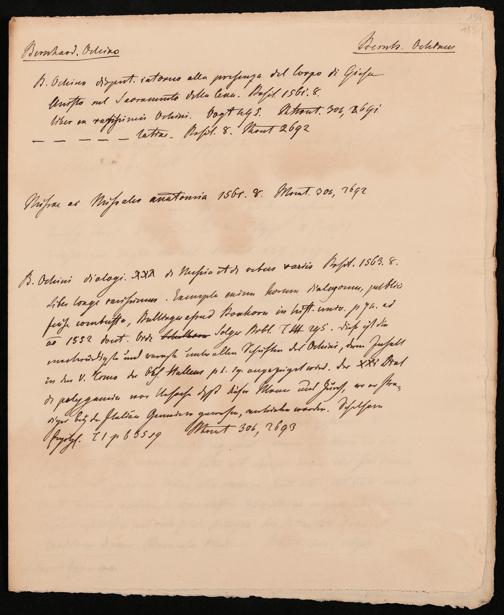 Bernhard. Ochino
Bernh. Ochinus
B. Ochino disput. intorno alla presenza del Corpo di Giesu
Christo nel Sacramento della Cena. Basil. 1561. 8.
liber ex rarissimis Ochini. Vogt 495. Mont. 306, 2691
— — — — — — latine. Basil. 8. Mont 2692
Missae ac Missalis anatomia 1561. 8. Mont. 306, 2692
B. Ochini dialogi. XXX di Messia et de rebus variis Basil. 1563. 8.
liber longe rarissimus. Exempla enim horum dialogorum, publice
combusta, Bullinger apud in hist. p 72. ad
ao 1552 docet. Solger Bibl T III 245. dieß ist die
merkwürdigste und rareste unter allen Schriften des Ochini, deren Inhalt
in den V. Tomo der Obs Hallens p 1. angezeiget wird. der XXI Dial
de polygamia war Ursache daß dieser Mann aus Zürch, wo er
bey der Italien Gemeinde gewesen, vertrieben worden. Schelhorn
T I p 635 Mont 306, 2693